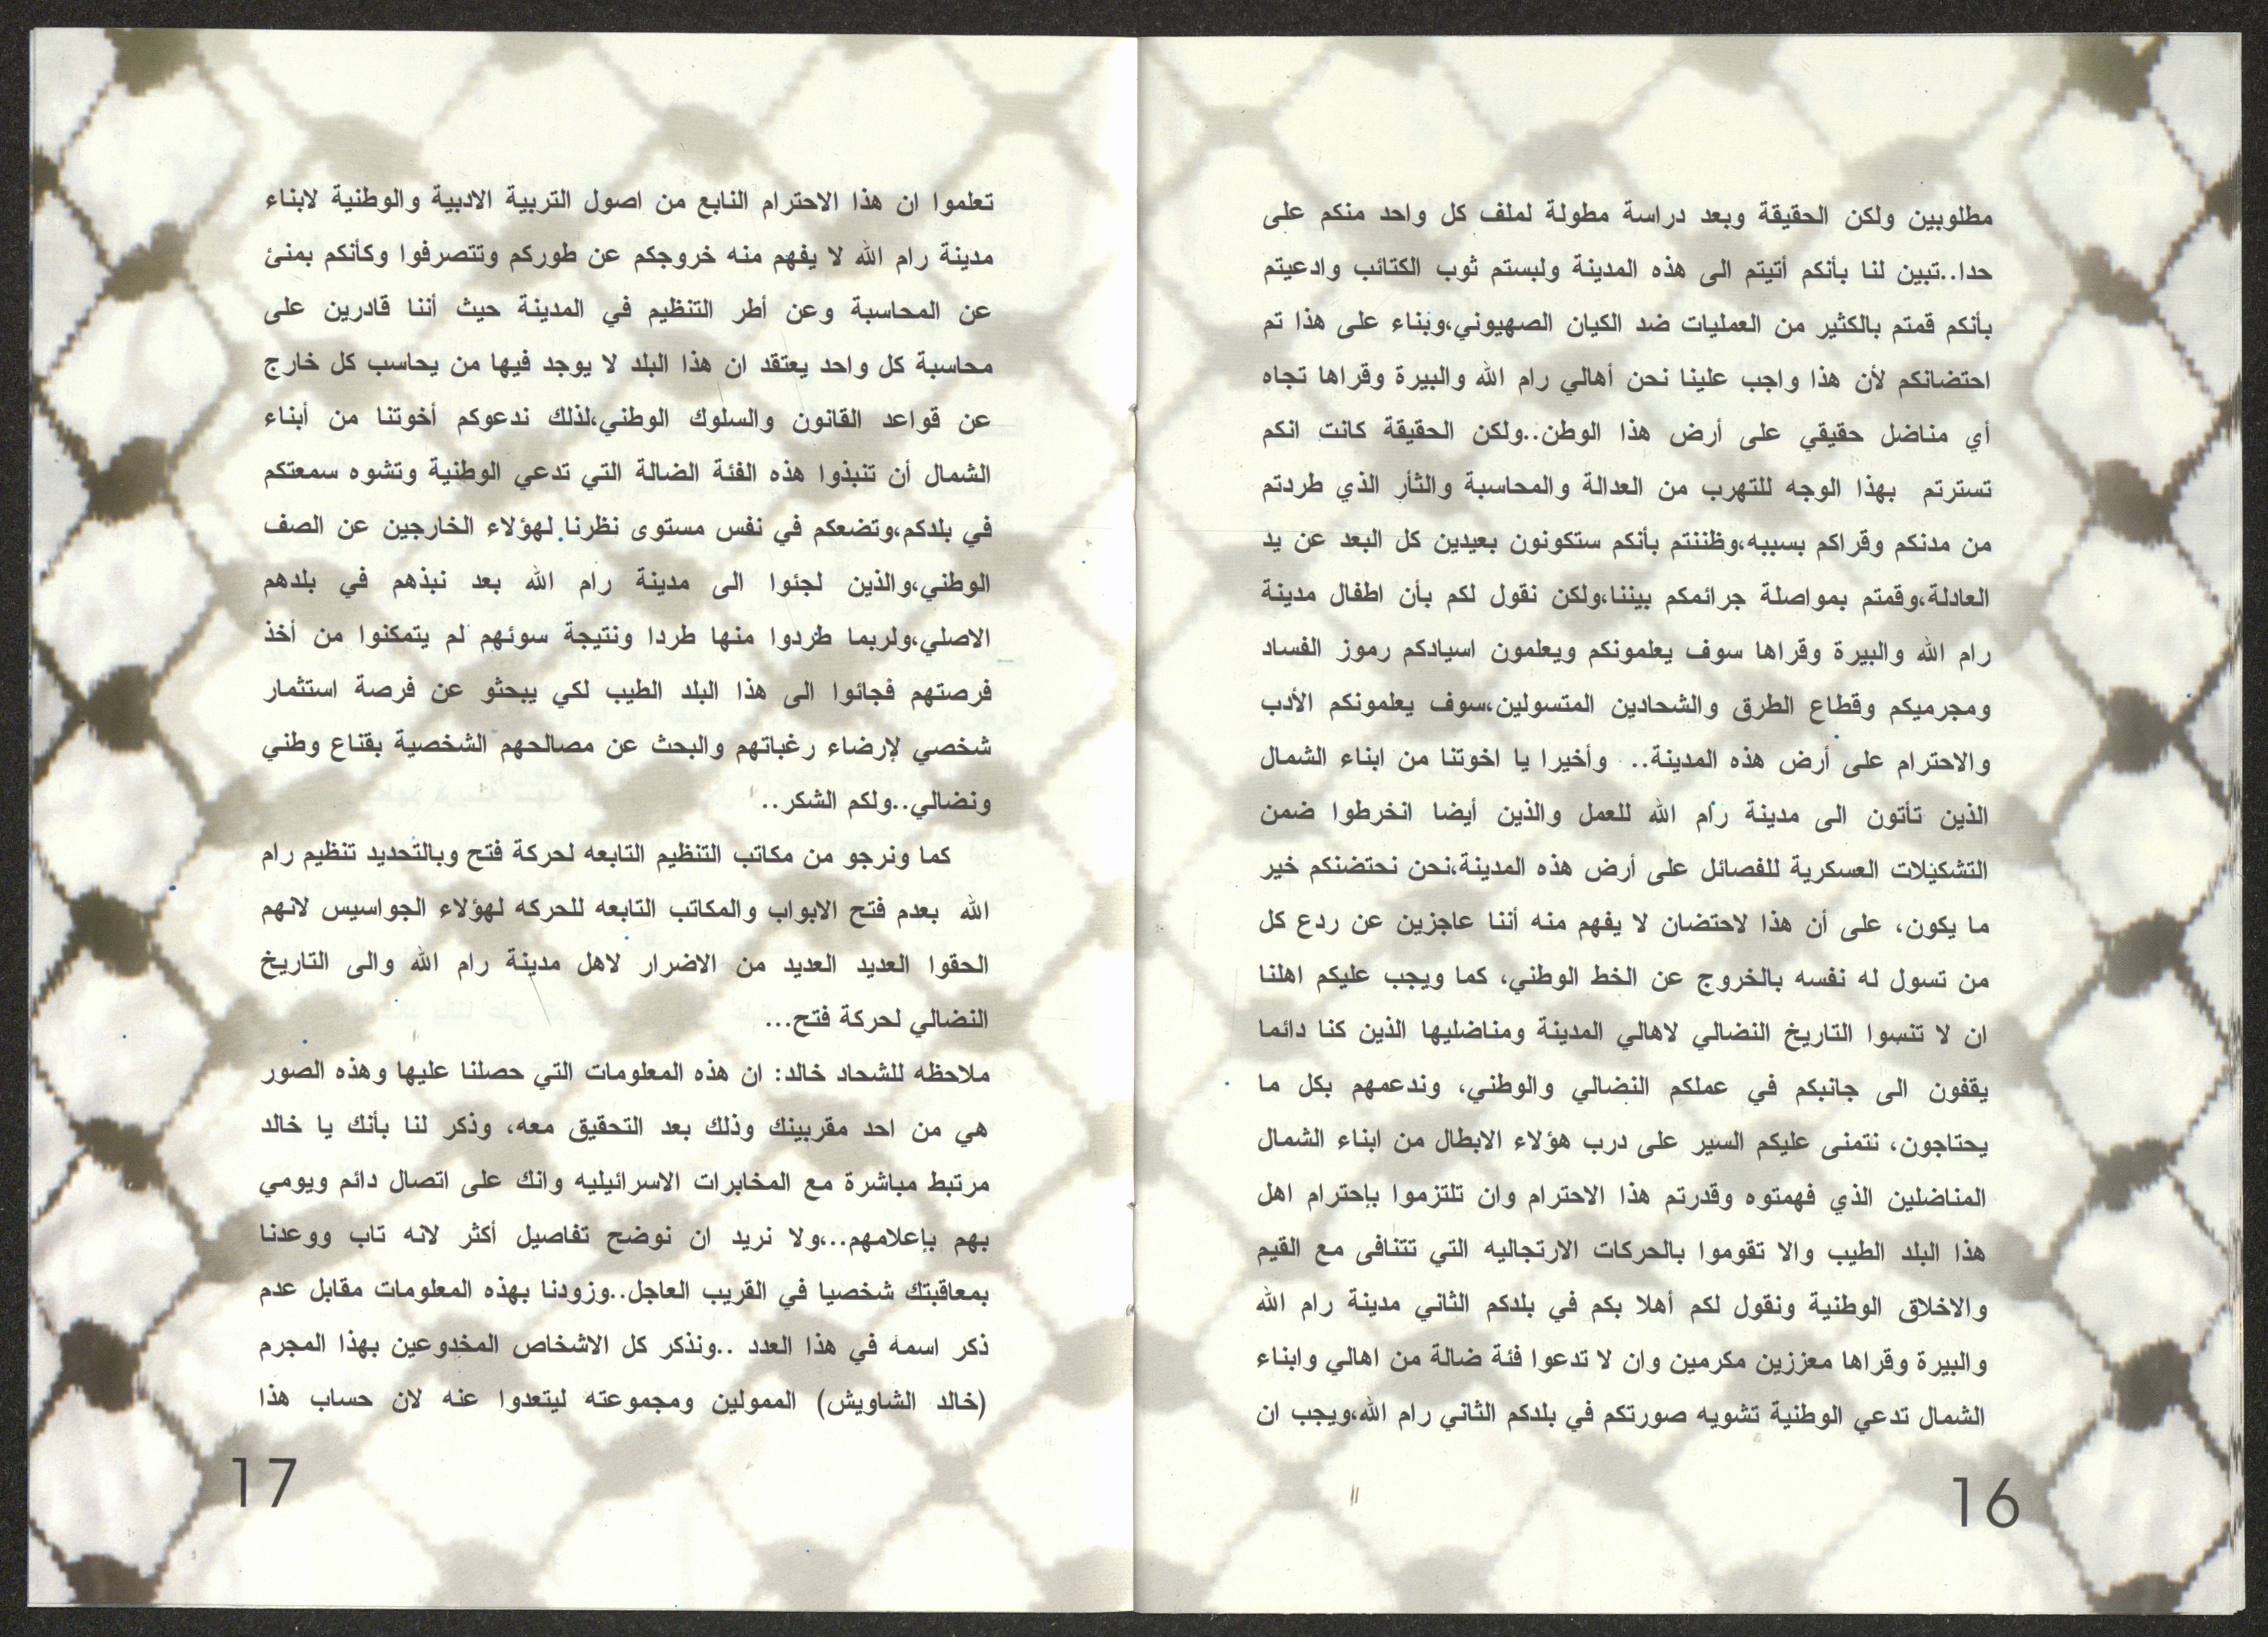 مطلوبين ولكن الحقيقة وبعد دراسة مطولة لملف كل واحد منكم على
حدا..تبين لنا بأنكم أتيتم الى هذه المدينة ولبستم ثوب الكتائب وادعيتم
بأنكم قمتم بالكثير من العمليات ضد الكيان الصهيوني،وبناء على هذا تم
احتضانكم لأن هذا واجب علينا نحن أهالي رام الله والبيرة وقراها تجاه
أي مناضل حقيقي على أرض هذا الوطن..ولكن الحقيقة كانت انكم
تسترتم بهذا الوجه للتهرب من العدالة والمحاسبة والثأر الذي طردتم
من مدنكم وقراكم بسببه،وظننتم بأنكم ستكونون بعيدين كل البعد عن يد
العادلة،وقمتم بمواصلة جرائمكم بيننا،ولكن نقول لكم بأن اطفال مدينة
رام الله والبيرة وقراها سوف يعلمونكم ويعلمون اسيادكم رموز الفساد
ومجرميكم وقطاع الطرق والشحادين المتسولين،سوف يعلمونكم الأدب
والاحترام على أرض هذه المدينة.. وأخيرا يا اخوتنا من ابناء الشمال
الذين تأتون الى مدينة رام الله للعمل والذين أيضا انخرطوا ضمن
التشكيلات العسكرية للفصائل على أرض هذه المدينة،نحن نحتضنكم خير
ما يكون، على أن هذا لاحتضان لا يفهم منه أننا عاجزين عن ردع كل
من تسول له نفسه بالخروج عن الخط الوطني، كما ويجب عليكم اهلنا
ان لا تنسوا التاريخ النضالي لاهالي المدينة ومناضليها الذين كنا دائما
يقفون الى جانبكم في عملكم النضالي والوطني، وندعمهم بكل ما
يحتاجون، نتمنى عليكم السير على درب هؤلاء الابطال من ابناء الشمال
المناضلين الذي فهمتوه وقدرتم هذا الاحترام وان تلتزموا بإحترام اهل
هذا البلد الطيب والا تقوموا بالحركات الارتجاليه التي تتنافى مع القيم
والاخلاق الوطنية ونقول لكم أهلا بكم في بلدكم الثاني مدينة رام الله
والبيرة وقراها معززين مكرمين وان لا تدعوا فئة ضالة من اهالي وابناء
الشمال تدعي الوطنية تشويه صورتكم في بلدكم الثاني رام الله،ويجب ان
16
تعلموا ان هذا الاحترام النابع من اصول التربية الادبية والوطنية لابناء
مدينة رام الله لا يفهم منه خروجكم عن طوركم وتتصرفوا وكأنكم بمنئ
عن المحاسبة وعن أطر التنظيم في المدينة حيث أننا قادرين على
محاسبة كل واحد يعتقد ان هذا البلد لا يوجد فيها من يحاسب كل خارج
عن قواعد القانون والسلوك الوطني،لذلك ندعوكم أخوتنا من أبناء
الشمال أن تنبذوا هذه الفئة الضالة التي تدعي الوطنية وتشوه سمعتكم
في بلدكم،وتضعكم في نفس مستوى نظرنا لهؤلاء الخارجين عن الصف
الوطني،والذين لجئوا الى مدينة رام الله بعد نبذهم في بلدهم
الاصلي،ولربما طردوا منها طردا ونتيجة سوئهم لم يتمكنوا من أخذ
فرصتهم فجائوا الى هذا البلد الطيب لكي يبحثو عن فرصة استثمار
شخصي لإرضاء رغباتهم والبحث عن مصالحهم الشخصية بقناع وطني
ونضالي..ولكم الشكر..
كما ونرجو من مكاتب التنظيم التابعه لحركة فتح وبالتحديد تنظيم رام
الله بعدم فتح الابواب والمكاتب التابعه للحركه لهؤلاء الجواسيس لانهم
الحقوا العديد العديد من الاضرار لاهل مدينة رام الله والى التاريخ
النضالي لحركة فتح...
ملاحظه للشحاد خالد: ان هذه المعلومات التي حصلنا عليها وهذه الصور
هي من احد مقربينك وذلك بعد التحقيق معه، وذكر لنا بأنك يا خالد
مرتبط مباشرة مع المخابرات الاسرائيليه وانك على اتصال دائم ويومي
بهم بإعلامهم..،ولا نريد ان نوضح تفاصيل أكثر لانه تاب ووعدنا
بمعاقبتك شخصيا في القريب العاجل..وزودنا بهذه المعلومات مقابل عدم
ذكر اسمه في هذا العدد ..ونذكر كل الاشخاص المخدوعين بهذا المجرم
(خالد الشاويش) الممولين ومجموعته ليتعدوا عنه لان حساب هذا
17